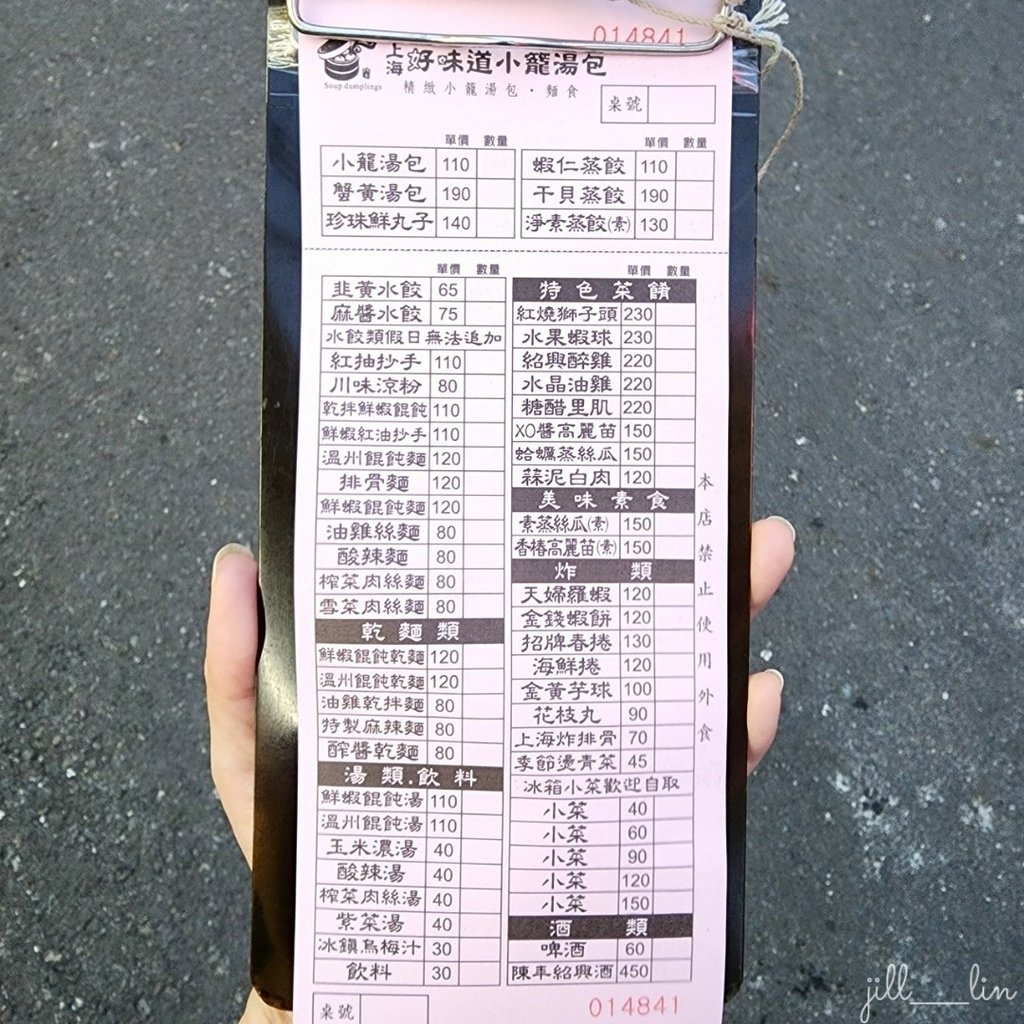 014841
上海 好味道小籠湯包
Soup dumplings
精緻小籠湯包・麵食
桌號
單價 數量
小籠湯包 110
蟹黃湯包 190
珍珠鮮丸子 140
單價 數量
蝦仁蒸餃 110
干貝蒸餃 190
淨素蒸餃(素) 130
單價 數量
韭黃水餃 65
麻醬水餃 75
水餃類假日無法追加
紅抽抄手 110
川味涼粉 80
乾拌鮮蝦餛飩 110
鮮蝦紅油抄手 110
溫州餛飩麵 120
排骨麵 120
鮮蝦餛飩麵 120
油雞絲麵 80
酸辣麵 80
榨菜肉絲麵 80
雪菜肉絲麵 80
乾麵類
鮮蝦餛飩乾麵 120
溫州餛飩乾麵 120
油雞乾拌麵 80
特製麻辣麵 80
酢醬乾麵 80
湯類.飲料
鮮蝦餛飩湯 110
溫州餛飩湯 110
玉米濃湯 40
酸辣湯 40
榨菜肉絲湯 40
紫菜湯 40
冰鎮烏梅汁 30
飲料 30
單價 數量
特色菜餚
紅燒獅子頭 230
水果蝦球 230
紹興醉雞 220
水晶油雞 220
糖醋里肌 220
XO醬高麗苗 150
蛤蠣蒸絲瓜 150
蒜泥白肉 120
美味素食
素蒸絲瓜(素) 150
香椿高麗苗(素) 150
炸類
天婦羅蝦 120
金錢蝦餅 120
招牌春捲 130
海鮮捲 120
金黃芋球 100
花枝丸 90
上海炸排骨 70
季節燙青菜 45
冰箱小菜歡迎自取
小菜 40
小菜 60
小菜 90
小菜 120
小菜 150
酒類
啤酒 60
陳年紹興酒 450
本店禁止使用外食
桌號
014841
jill___lin